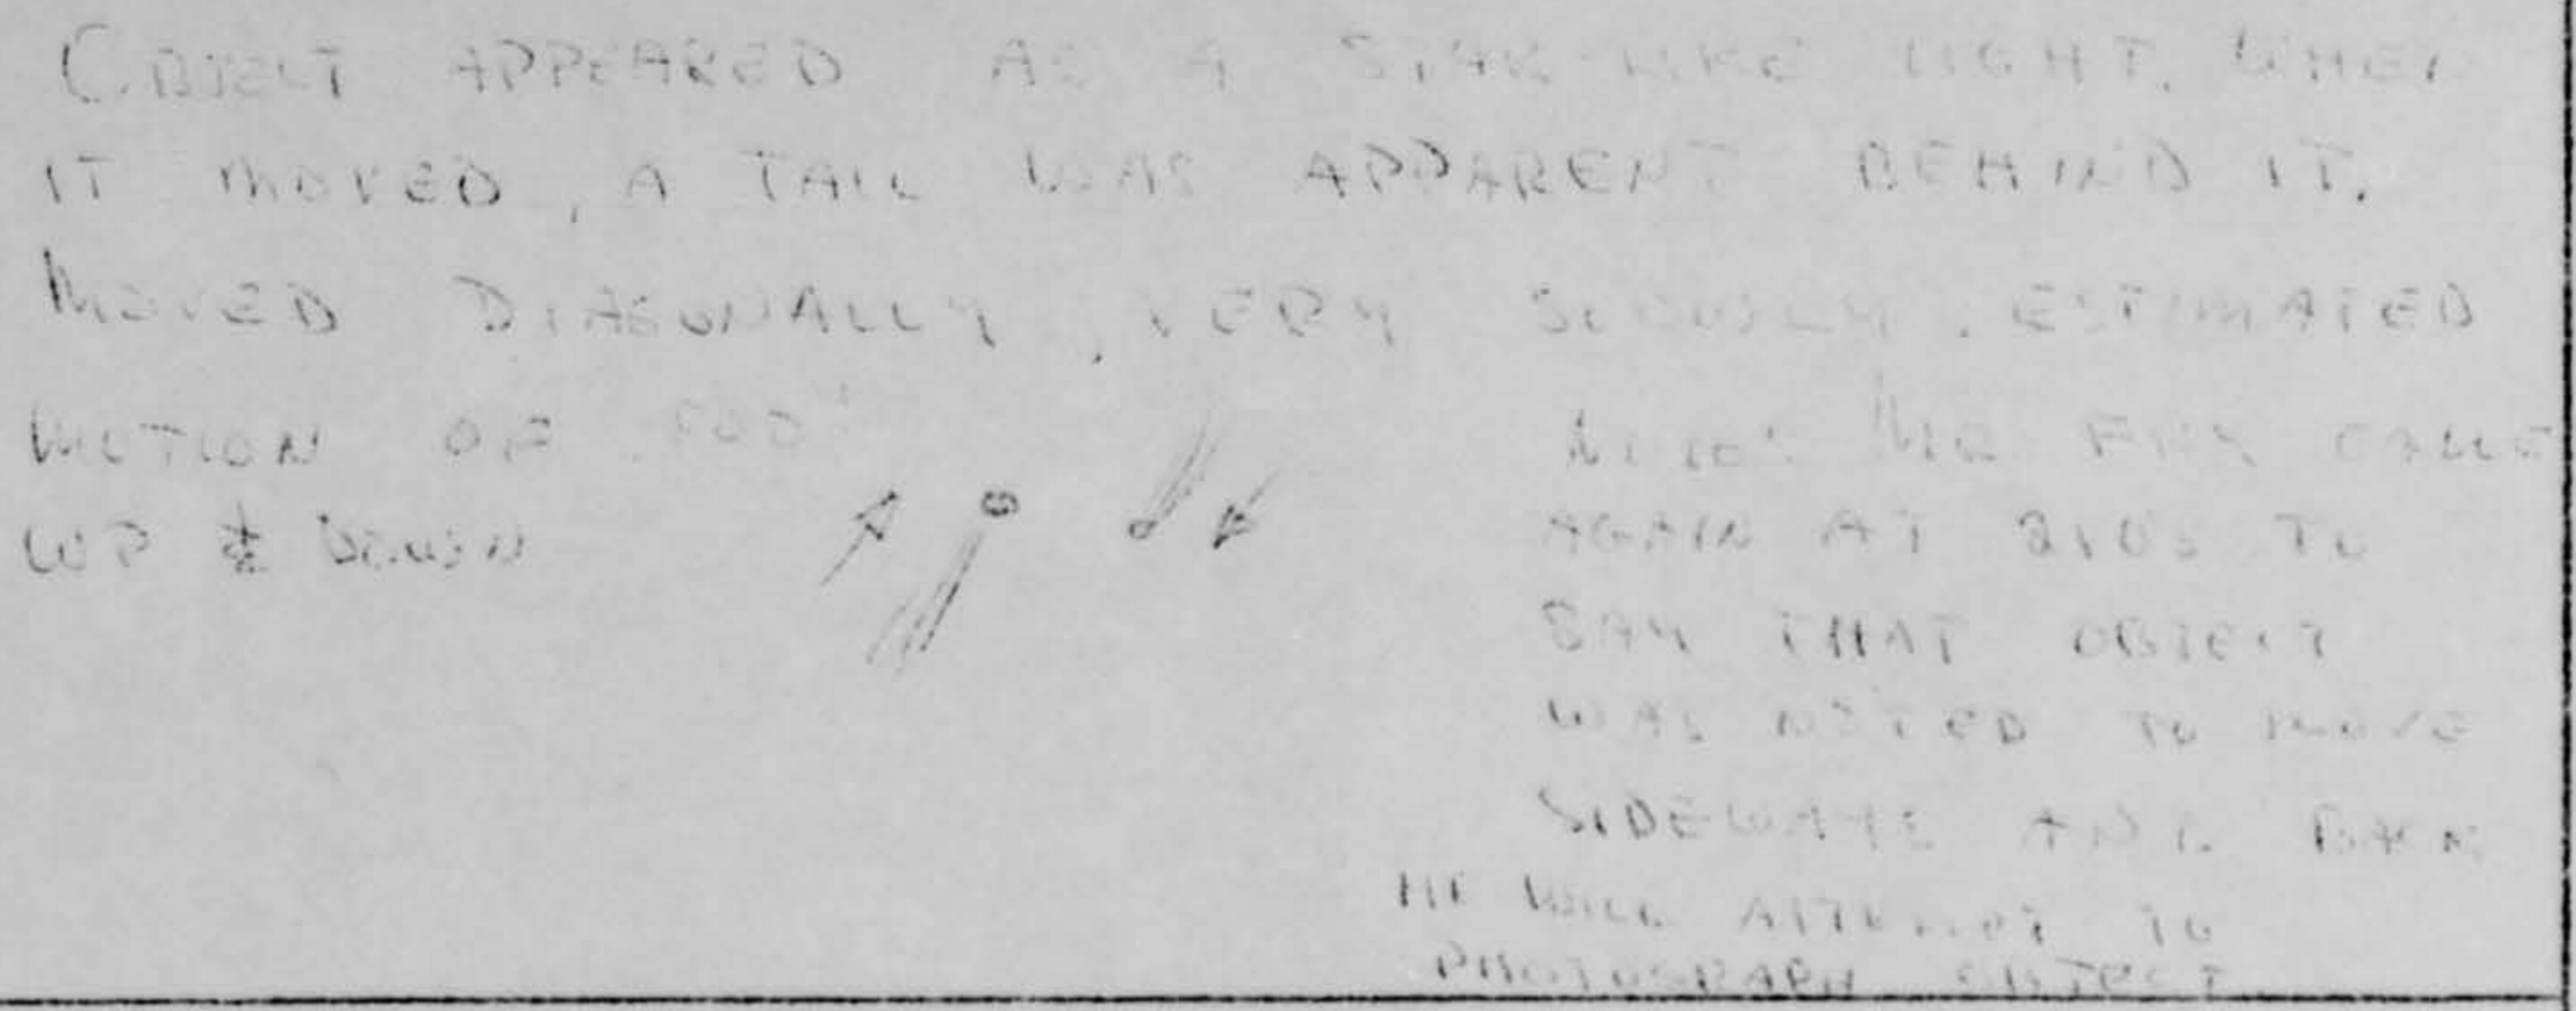 OBJECT APPEARED AS A STAR-LIKE LIGHT. WHEN
IT MOVED, A TAIL WAS APPARENT BEHIND IT.
MOVED DIAGONALLY, VERY SLOWLY. ESTIMATED
MOTION OF
UP & DOWN
NOTE: MR CALLED
AGAIN AT TO
SAY THAT OBJECT
WAS NOTED TO MOVE
SIDEWAYS AND BACK
HE WILL ATTEMPT TO
PHOTOGRAPH OBJECT